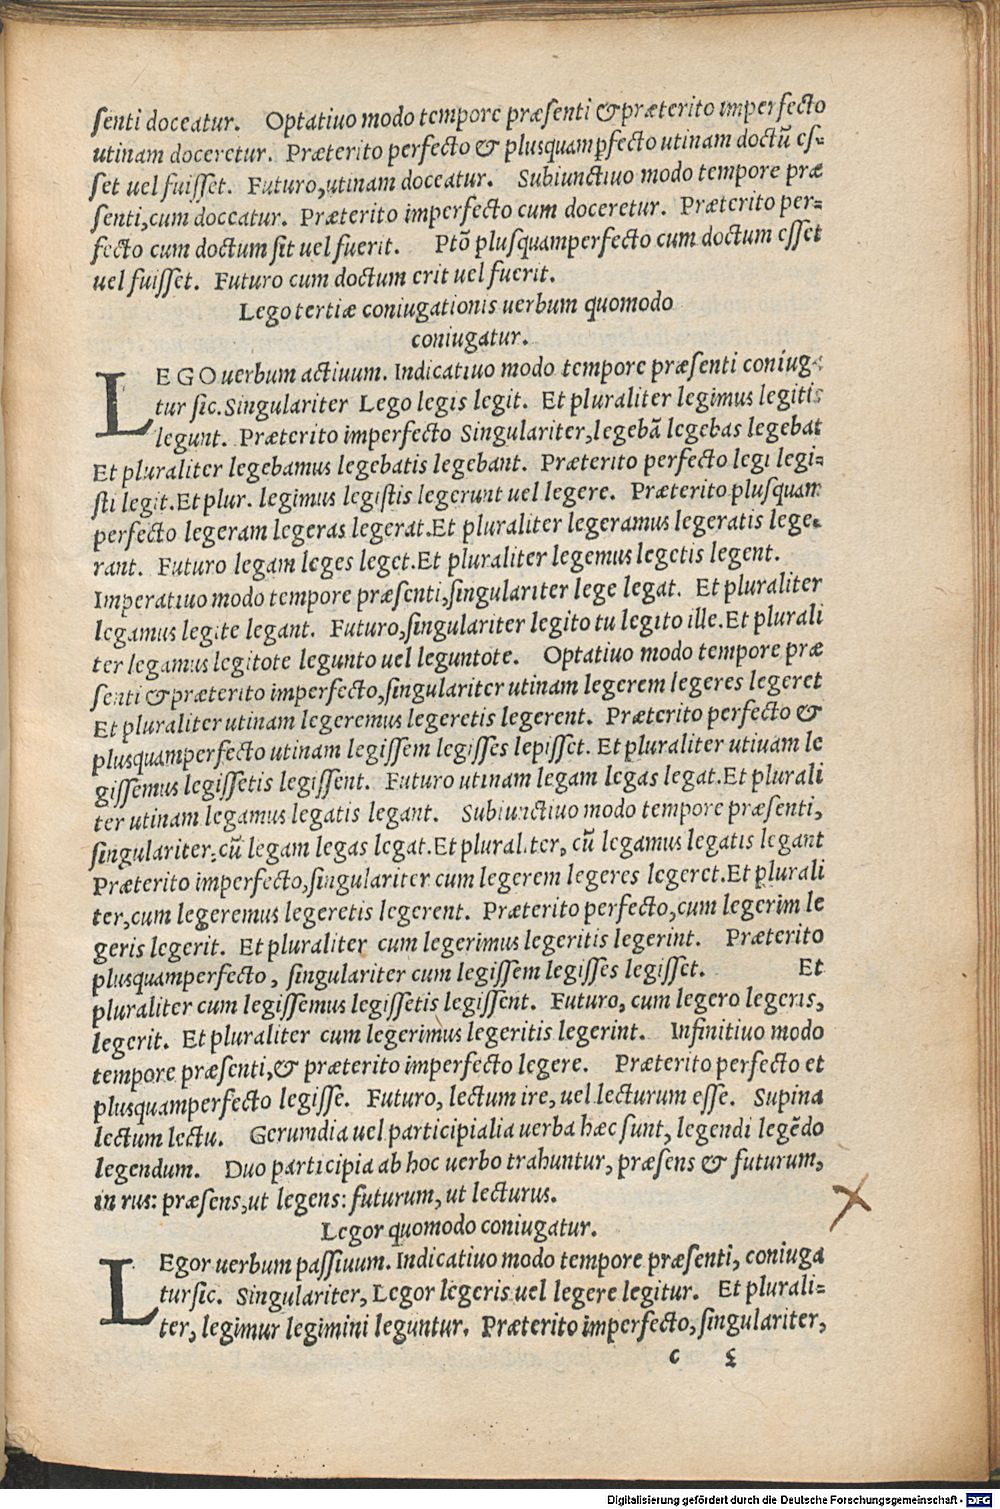 ſenti doceatur. Optatiuo modo tempore præſenti & præterito imperfecto
utinam doceretur. Præterito perfecto & plusquamꝑfecto utinam doctū eſ=
ſet uel fuiſſet. Futuro,utinam doceatur. Subiunctiuo modo tempore præ
ſenti,cum doceatur. Præterito imperfecto cum doceretur. Præterito per=
fecto cum doctum ſit uel fuerit. Ptō pluſquamperfecto cum doctum eſſet
uel fuiſſet. Futuro cum doctum erit uel fuerit.
Lego tertiæ coniugationis uerbum quomodo
coniugatur.
LEGO uerbum actiuum. Indicatiuo modo tempore præſenti coniuga
tur ſic.Singulariter Lego legis legit. Et pluraliter legimus legitis
legunt. Præterito imperfecto Singulariter,legebā legebas legebat
Et pluraliter legebamus legebatis legebant. Præterito perfecto legi legi=
ſti legit.Et plur. legimus legiſtis legerunt uel legere. Præterito pluſquam
perfecto legeram legeras legerat.Et pluraliter legeramus legeratis lege=
rant. Futuro legam leges leget.Et pluraliter legemus legetis legent.
Imperatiuo modo tempore præſenti,ſingulariter lege legat. Et pluraliter
legamus legite legant. Futuro,ſingulariter legito tu legito ille.Et plurali
ter legamus legitote legunto uel leguntote. Optatiuo modo tempore præ
ſenti & præterito imperfecto,ſingulariter utinam legerem legeres legeret
Et pluraliter utinam legeremus legeretis legerent. Præterito perfecto &
plusquamperfecto utinam legiſſem legiſſes lepiſſet. Et pluraliter utiuam le
giſſemus legiſſetis legiſſent. Futuro utinam legam legas legat.Et plurali
ter utinam legamus legatis legant. Subiunctiuo modo tempore præſenti,
ſingulariter,cū legam legas legat.Et pluraliter, cū legamus legatis legant
Præterito imperfecto,ſingulariter cum legerem legeres legeret.Et plurali
ter,cum legeremus legeretis legerent. Præterito perfecto,cum legerim le
geris legerit. Et pluraliter cum legerimus legeritis legerint. Præterito
plusquamperfecto, ſingulariter cum legiſſem legiſſes legiſſet. Et
pluraliter cum legiſſemus legiſſetis legiſſent. Futuro, cum legero legeris,
legerit. Et pluraliter cum legerimus legeritis legerint. Infinitiuo modo
tempore præſenti,& præterito imperfecto legere. Præterito perfecto et
plusquamperfecto legiſſe. Futuro, lectum ire, uel lecturum eſſe. Supina
lectum lectu. Gerumdia uel participialia uerba hæc ſunt, legendi legēdo
legendum. Duo participia ab hoc uerbo trahuntur, præſens & futurum,
in rus: præſens,ut legens: futurum, ut lecturus.
Legor quomodo coniugatur.
LEgor uerbum paſſiuum. Indicatiuo modo tempore præſenti, coniuga
tur ſic. Singulariter, Legor legeris uel legere legitur. Et plurali=
ter, legimur legimini leguntur. Præterito imperfecto, ſingulariter,
c
Digitalisierung gefördert durch die Deutsche Forschungsgemeinschaft - DFG